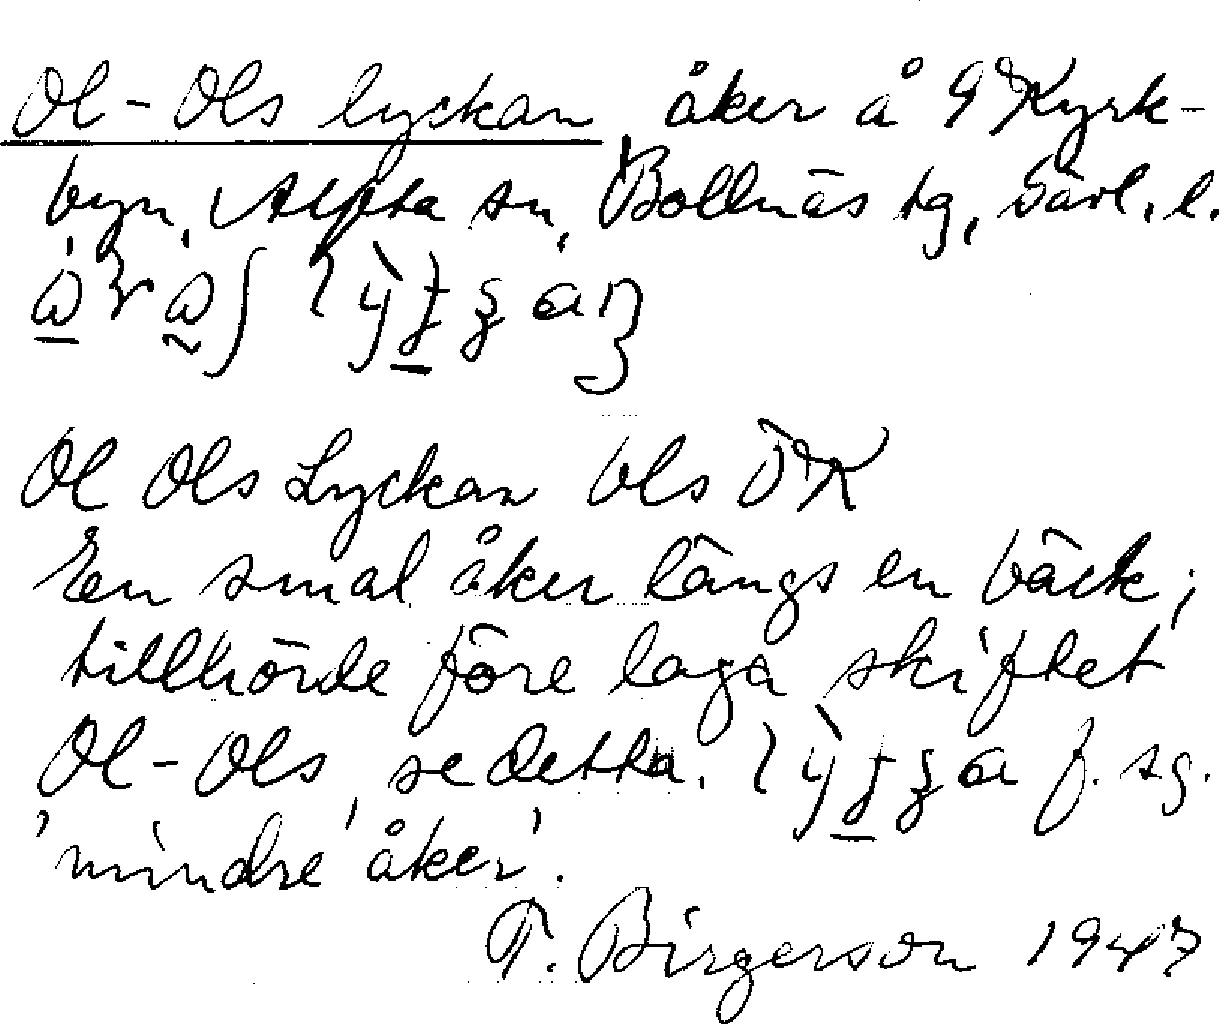 Ol-Ols lyckan, åker å 9 Kyrk-
byn, Alfta sn, Bollnäs tg, Gävl. l.
Ol Ols Lyckan Ols ÖK
En smal åker längs en bäck;
tillhörde före laga skiftet
Ol-Ols, se detta. f. sg.
'mindre åker'.
T. Birgerson 1947